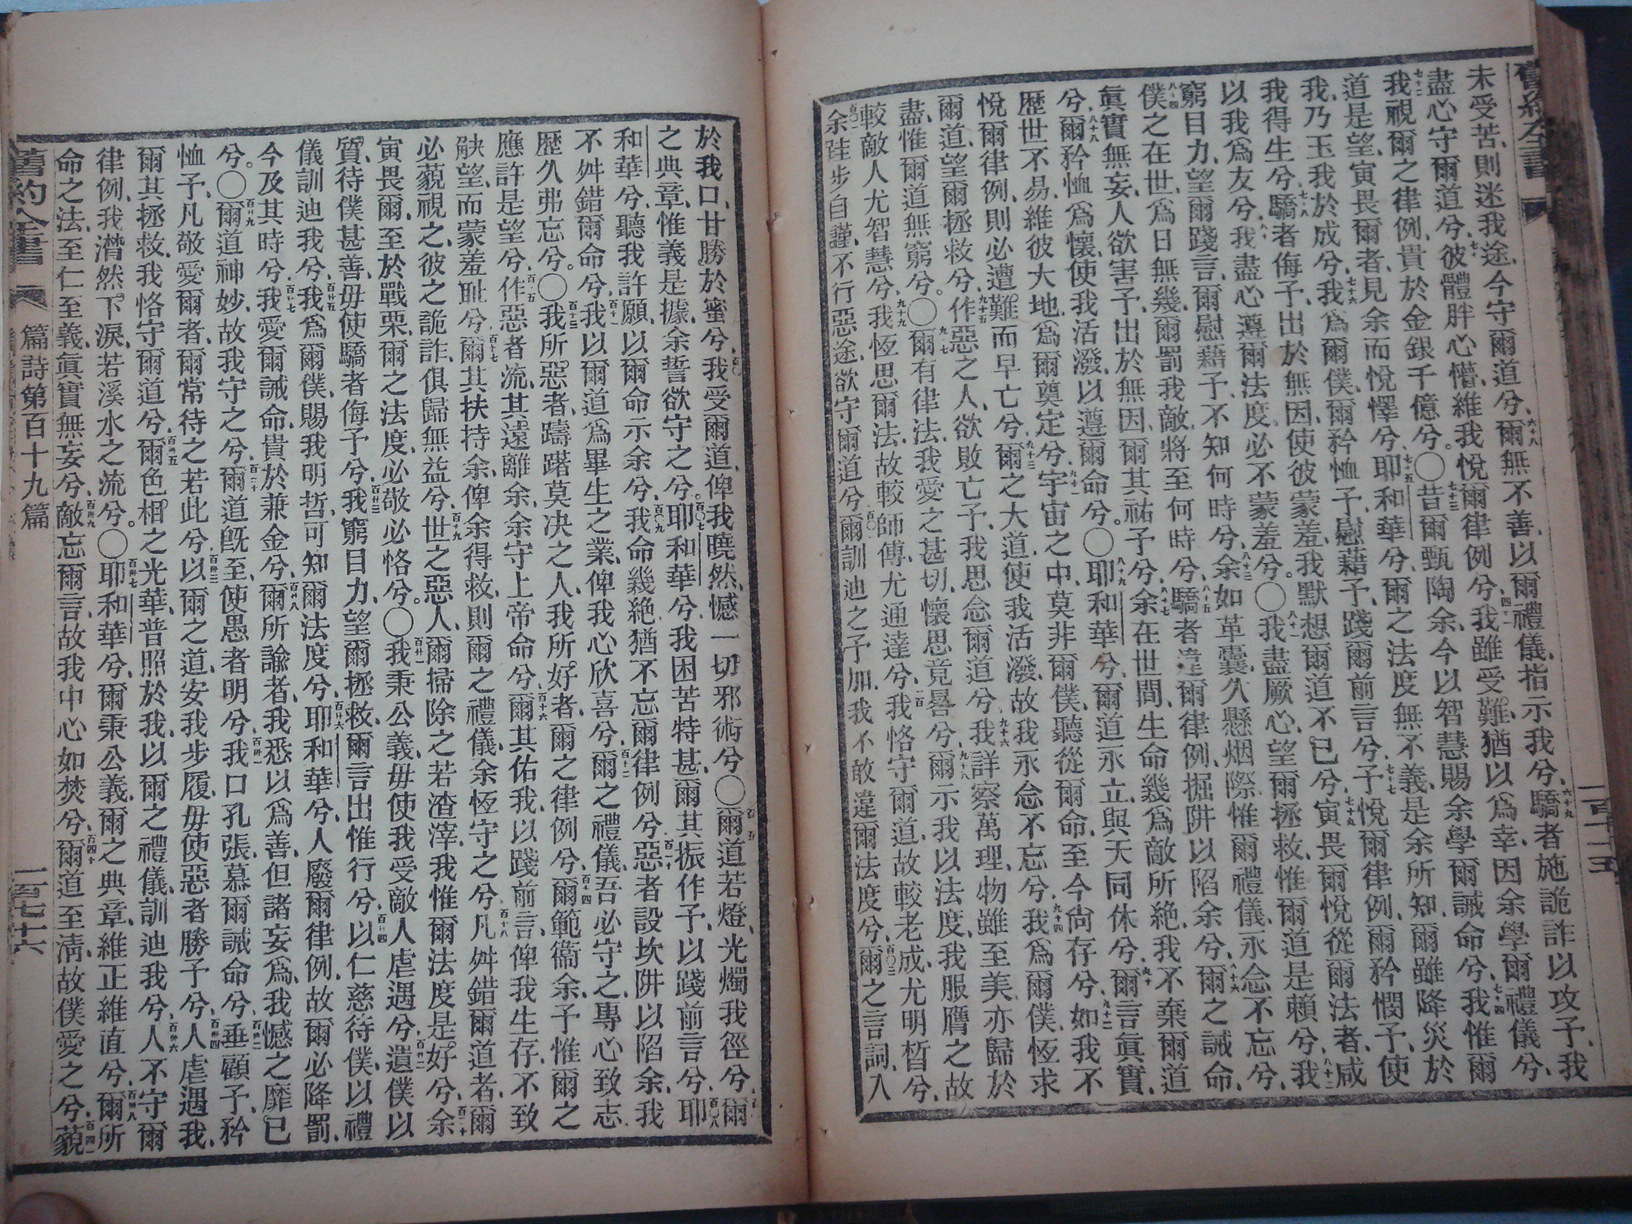 舊約全書
未受苦、則迷我途、今守爾道兮、六十八爾無不善、以爾禮儀、指示我兮、六十九驕者施詭詐以攻予、我
盡心守爾道兮、七十彼體胖心懵、維我悅爾律例兮、七十一我雖受難、猶以爲幸、因余學爾禮儀兮、
七十二我視爾之律例、貴於金銀千億兮。〇七十三昔爾甄陶余、今以智慧賜余學爾誡命兮、七十四我惟爾
道是望、寅畏爾者、見余而悅懌兮、七十五耶和華兮、爾之法度、無不義、是余所知、爾雖降災於
我、乃玉我於成兮、七十六我爲爾僕、爾矜恤予、慰藉予、踐爾前言兮、七十七予悅爾律例、爾矜憫予、使
我得生兮、七十八驕者侮予、出於無因、使彼蒙羞、我默想爾道不已兮、七十九寅畏爾、悅從爾法者、咸
以我爲友兮、八十我盡心遵爾法度、必不蒙羞兮。〇八十一我盡厥心、望爾拯救、惟爾道是賴兮、八十二我
窮目力、望爾踐言、爾慰藉予、不知何時兮、八十三余如革囊、久懸烟際、惟爾禮儀、永念不忘兮、
八十四僕之在世、爲日無幾、爾罰我敵、將至何時兮、八十五驕者違爾律例、掘阱以陷余兮、八十六爾之誡命、
眞實無妄、人欲害予、出於無因、爾其祐予兮、八十七余在世間、生命幾爲敵所絕、我不棄爾道
兮、八十八爾矜恤爲懷、使我活潑、以遵爾命兮。〇八十九耶和華兮、爾道永立、與天同休兮、九十爾言眞實、
歷世不易、維彼大地、爲爾奠定兮、九十一宇宙之中、莫非爾僕、聽從爾命、至今尙存兮、九十二如我不
悅爾律例、則必遭難而早亡兮、九十三爾之大道、使我活潑、故我永念不忘兮、九十四我爲爾僕、恆求
爾道、望爾拯救兮、九十五作惡之人、欲敗亡予、我思念爾道兮、九十六我詳察萬理、物雖至美、亦歸於
盡、惟爾道無窮兮。〇九十七爾有律法、我愛之甚切、懷思竟晷兮、九十八爾示我以法度、我服膺之、故
較敵人尤智慧兮、九十九我恆思爾法、故較師傅、尤通達兮、一百我恪守爾道、故較老成、尤明晳兮、
百〇一余跬步自謹、不行惡途、欲守爾道兮、百〇二爾訓迪之予、加、我不敢違爾法度兮、百〇三爾之言詞、入
於我口、甘勝於蜜兮、百〇四我受爾道、俾我曉然、憾一切邪術兮、〇百〇五爾道若燈、光燭我徑兮、百〇六爾
之典章、惟義是據、余誓欲守之兮。百〇七耶和華兮、我困苦特甚、爾其振作予、以踐前言兮、百〇八耶
和華兮、聽我許願、以爾命示余兮、百〇九我命幾絕、猶不忘爾律例兮、百一十惡者設坎阱以陷余、我
不舛錯爾命兮、百十一我以爾道爲畢生之業、俾我心欣喜兮、百十二爾之禮儀、吾必守之、專心致志、
歷久弗忘兮。〇百十三我所惡者、躊躇莫決之人、我所好者、爾之律例兮、百十四爾範衞余、予惟爾之
應許是望兮、百十五作惡者流、其遠離余、余守上帝命兮、百十六爾其佑我、以踐前言、俾我生存、不致
觖望而蒙羞恥兮、百十七爾其扶持余、俾余得救、則爾之禮儀、余恆守之兮、百十八凡舛錯爾道者、爾
必藐視之、彼之詭詐、俱歸無益兮、百十九世之惡人、爾掃除之若渣滓、我惟爾法度是好兮、百二十余
寅畏爾、至於戰栗、爾之法度、必敬必恪兮。〇百廿一我秉公義、毋使我受敵人虐遇兮、百廿二遺僕以
質、待僕甚善、毋使驕者侮予兮、百廿三我窮目力、望爾拯救、爾言出惟行兮、百廿四以仁慈待僕、以禮
儀訓迪我兮、百廿五我爲爾僕、賜我明哲、可知爾法度兮、百廿六耶和華兮、人廢爾律例、故爾必降罰、
今及其時兮、百廿七我愛爾誡命、貴於兼金兮、百廿八爾所諭者、我悉以爲善、但諸妄爲、我憾之靡已
兮。〇百廿九爾道神妙、故我守之兮、百三十爾道旣至、使愚者明兮、百卅一我口孔張、慕爾誡命兮、百卅二垂顧予、矜
恤予、凡敬愛爾者、爾常待之若此兮、百卅三以爾之道、安我步履、毋使惡者勝予兮、百卅四人虐遇我、
爾其拯救、我恪守爾道兮、百卅五爾色相之光華、普照於我、以爾之禮儀、訓迪我兮、百卅六人不守爾
律例、我潸然下淚、若溪水之流兮。〇百卅七耶和華兮、爾秉公義、爾之典章、維正維直兮、百卅八爾所
命之法、至仁至義、眞實無妄兮、百卅九敵忘爾言、故我中心如焚兮、百四十爾道至淸、故僕愛之兮、百四一藐
舊約全書
篇詩第百十九篇
一百七十六